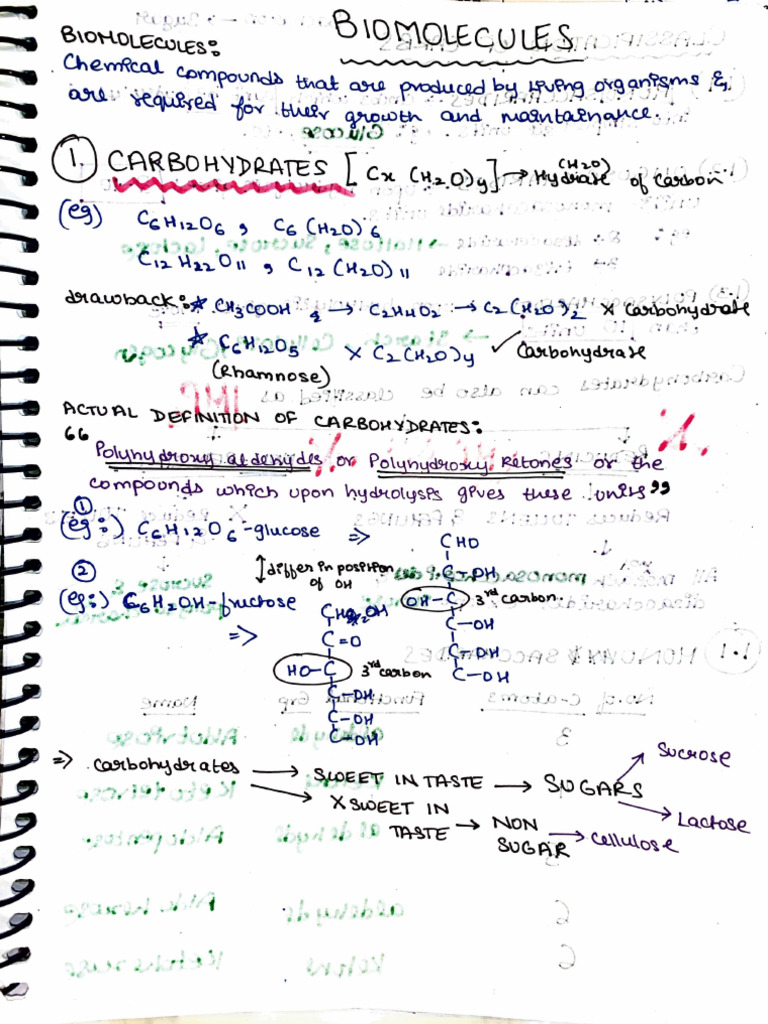 BIOMOLECULES
BIOMOLECULES:
Chemical compounds that are produced by living organisms &
are required for their growth and maintainance.
1. CARBOHYDRATES [Cx (H2O)y] → Hydrate of carbon
(H2O)
(eg) C6H12O6, C6(H2O)6
C12H22O11, C12(H2O)11
drawback: * CH3COOH → C2H4O2 → C2(H2O)2 X carbohydrate
* C6H12O5 X C2(H2O)y ✓ Carbohydrate
(Rhamnose)
ACTUAL DEFINITION OF CARBOHYDRATES:
“Polyhydroxy aldehydes or Polyhydroxy Ketones or the
compounds which upon hydrolysis gives these units”
① (eg:) C6H12O6-glucose ⇒
CHO
C-OH
OH-C 3rd carbon.
C-OH
C-OH
C-OH
↕ differ in position
of OH
② (eg:) C6H2OH-fructose
⇒
C=O
HO-C 3rd carbon
C-OH
C-OH
C-OH
⇒ carbohydrates → SWEET IN TASTE → SUGARS → Sucrose
→ Lactose
→ X SWEET IN
TASTE → NON
SUGAR → Cellulose